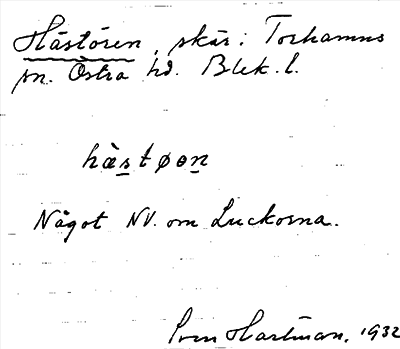 Hästören, skär i Torhamns
sn. Östra hd. Blek. l.
hästøen
Något NV. om Luckorna.
Sven Hartman, 1932